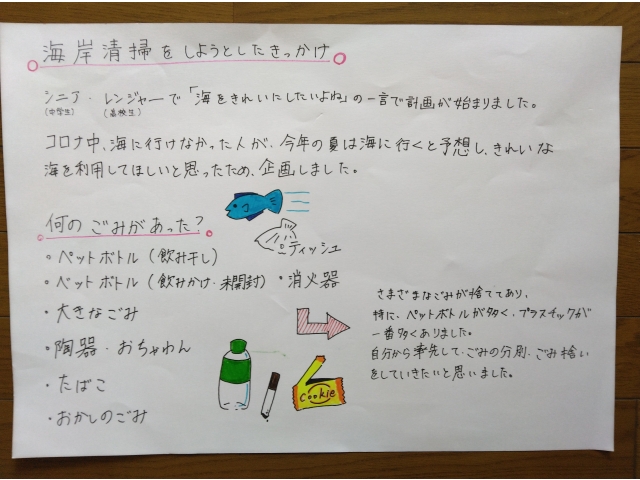 海岸清掃をしようとしたきっかけ
シニア・レンジャーで「海をきれいにしたいよね」の一言で計画が始まりました。
(中学生) (高校生)
コロナ中、海に行けなかった人が、今年の夏は海に行くと予想し、きれいな
海を利用してほしいと思ったため、企画しました。
何のごみがあった?
・ペットボトル(飲み干し)
・ペットボトル(飲みかけ・未開封)
・大きなごみ
・陶器・おちゃわん
・たばこ
・おかしのごみ
・ティッシュ
・消火器
さまざまなごみが捨ててあり、
特に、ペットボトルが多く、プラスチックが
一番多くありました。
自分から率先して、ごみの分別、ごみ捨い
をしていきたいと思いました。
Cookie